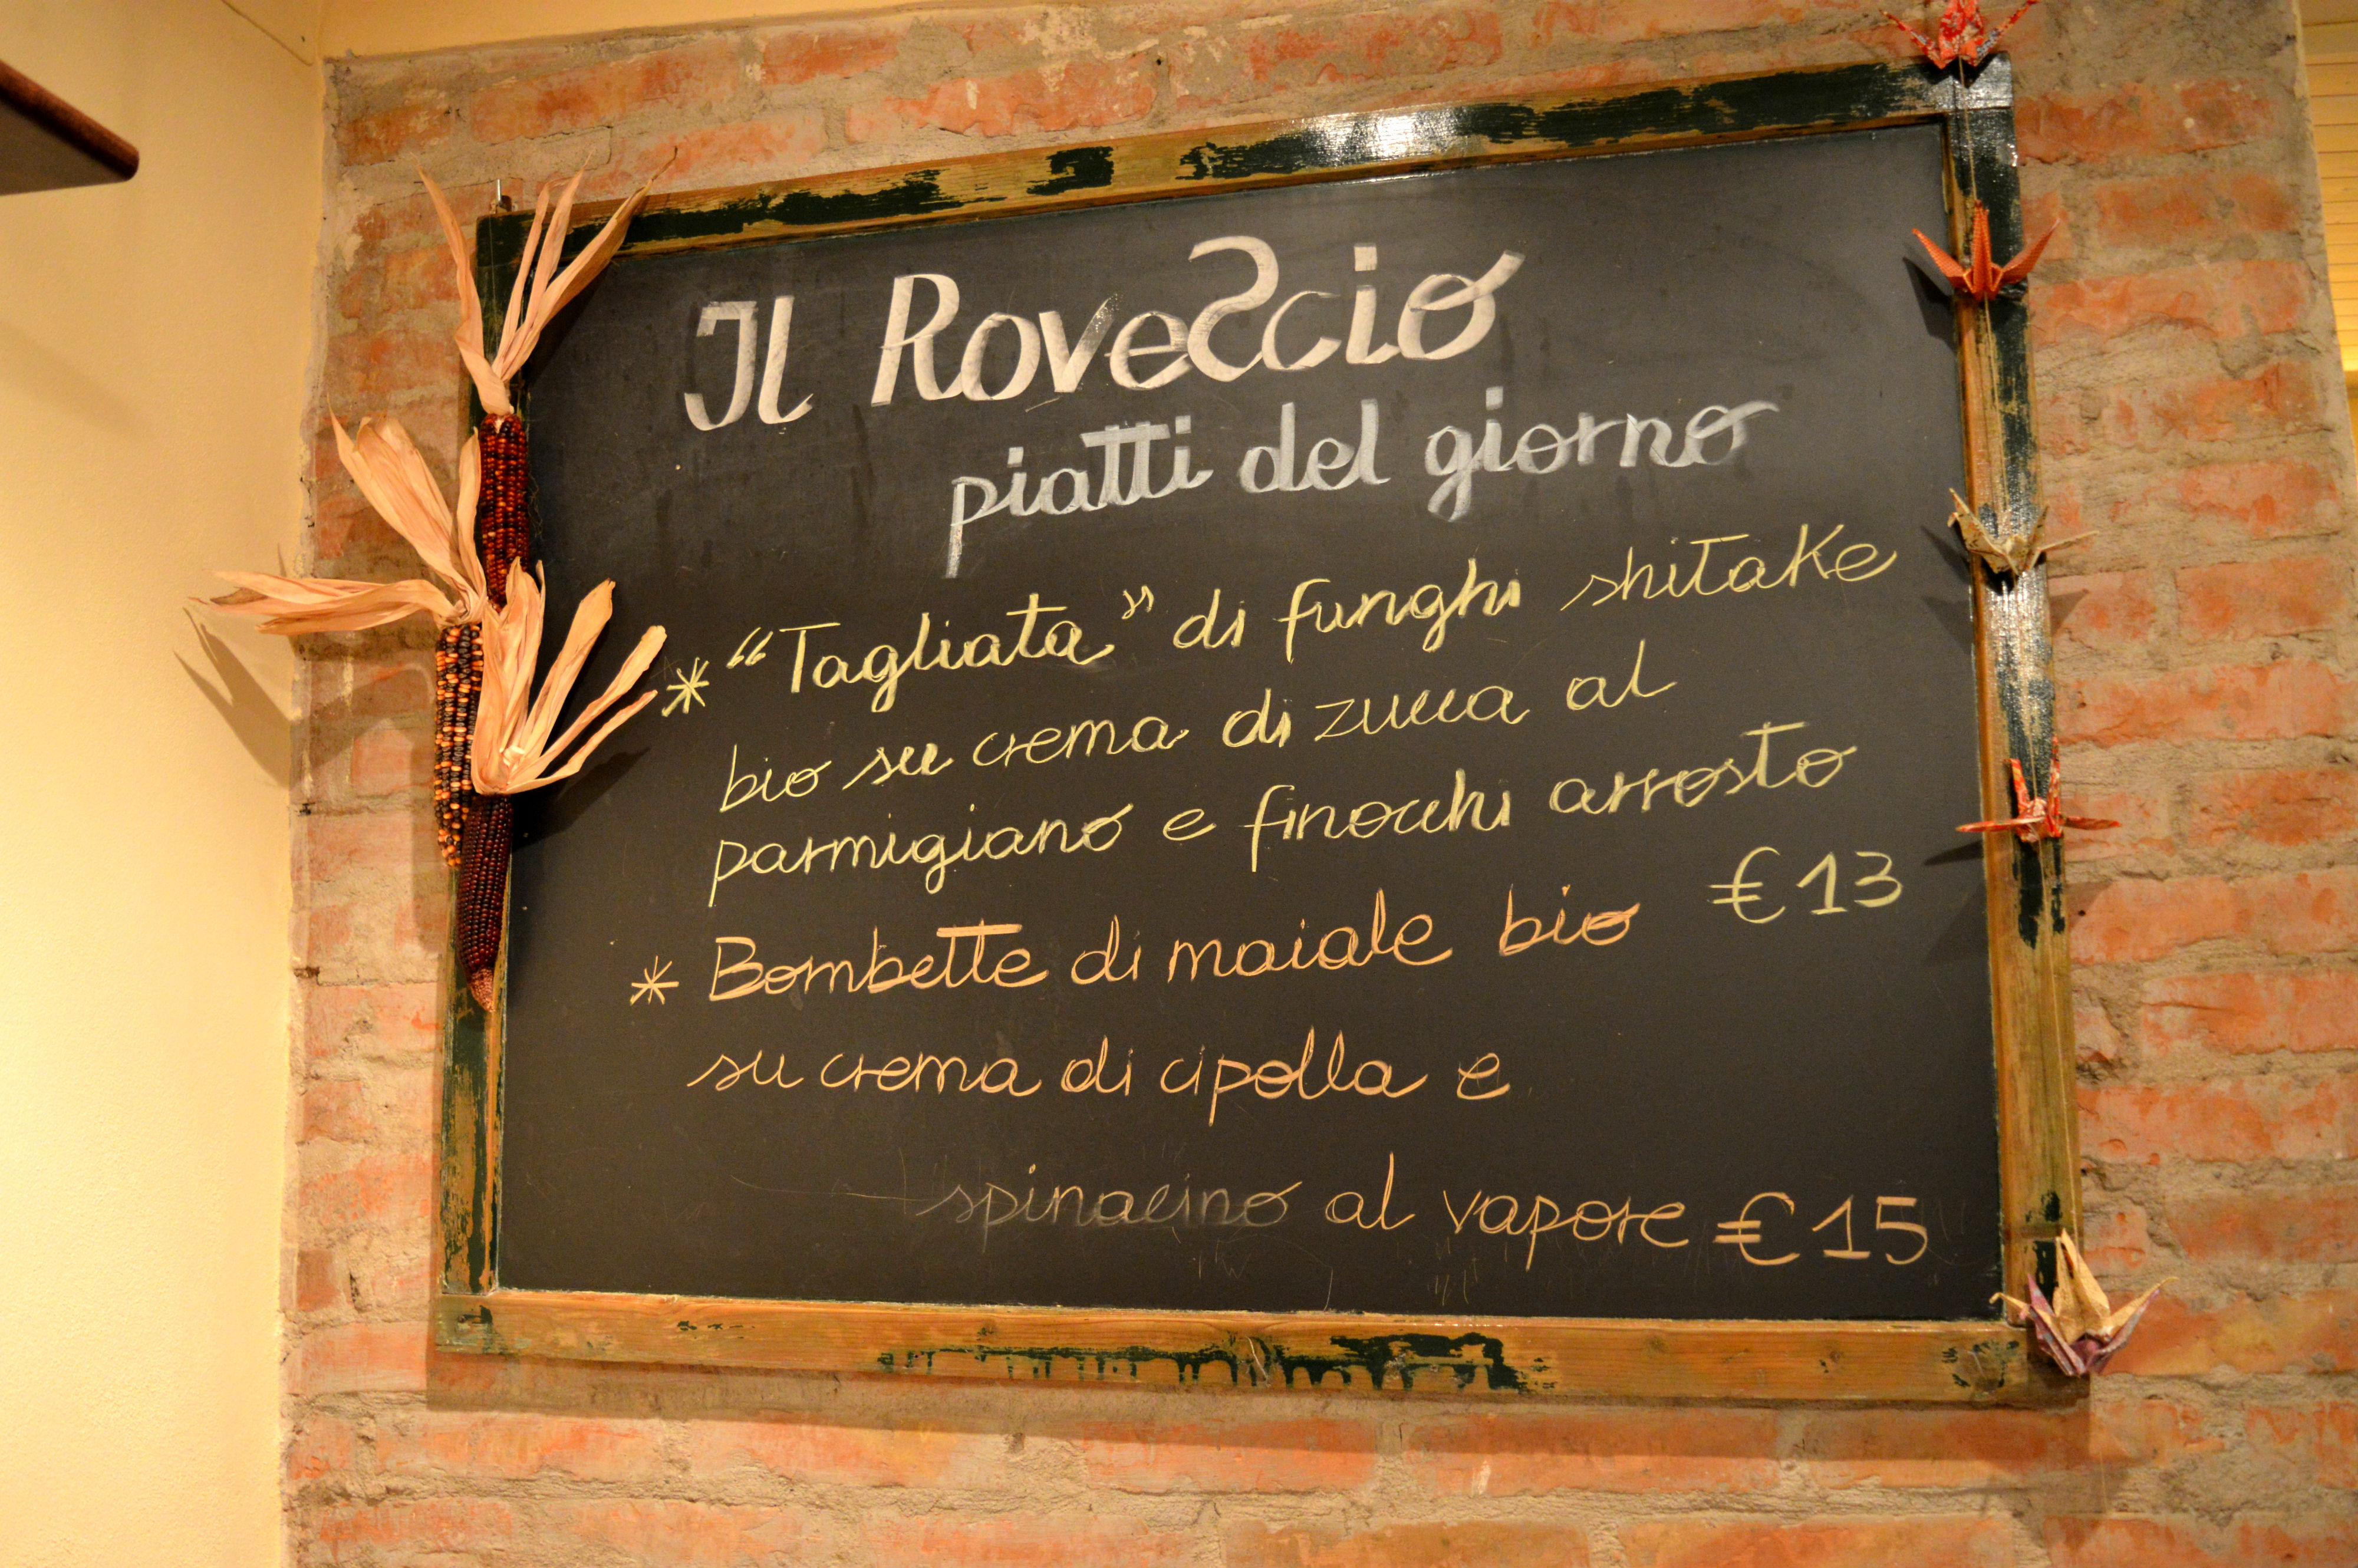 Il Rovescio
piatti del giorno
* “Tagliata” di funghi shitake
bio su crema di zucca al
parmigiano e finocchi arrosto
€ 13
* Bombette di maiale bio
su crema di cipolla e
spinacino al vapore € 15